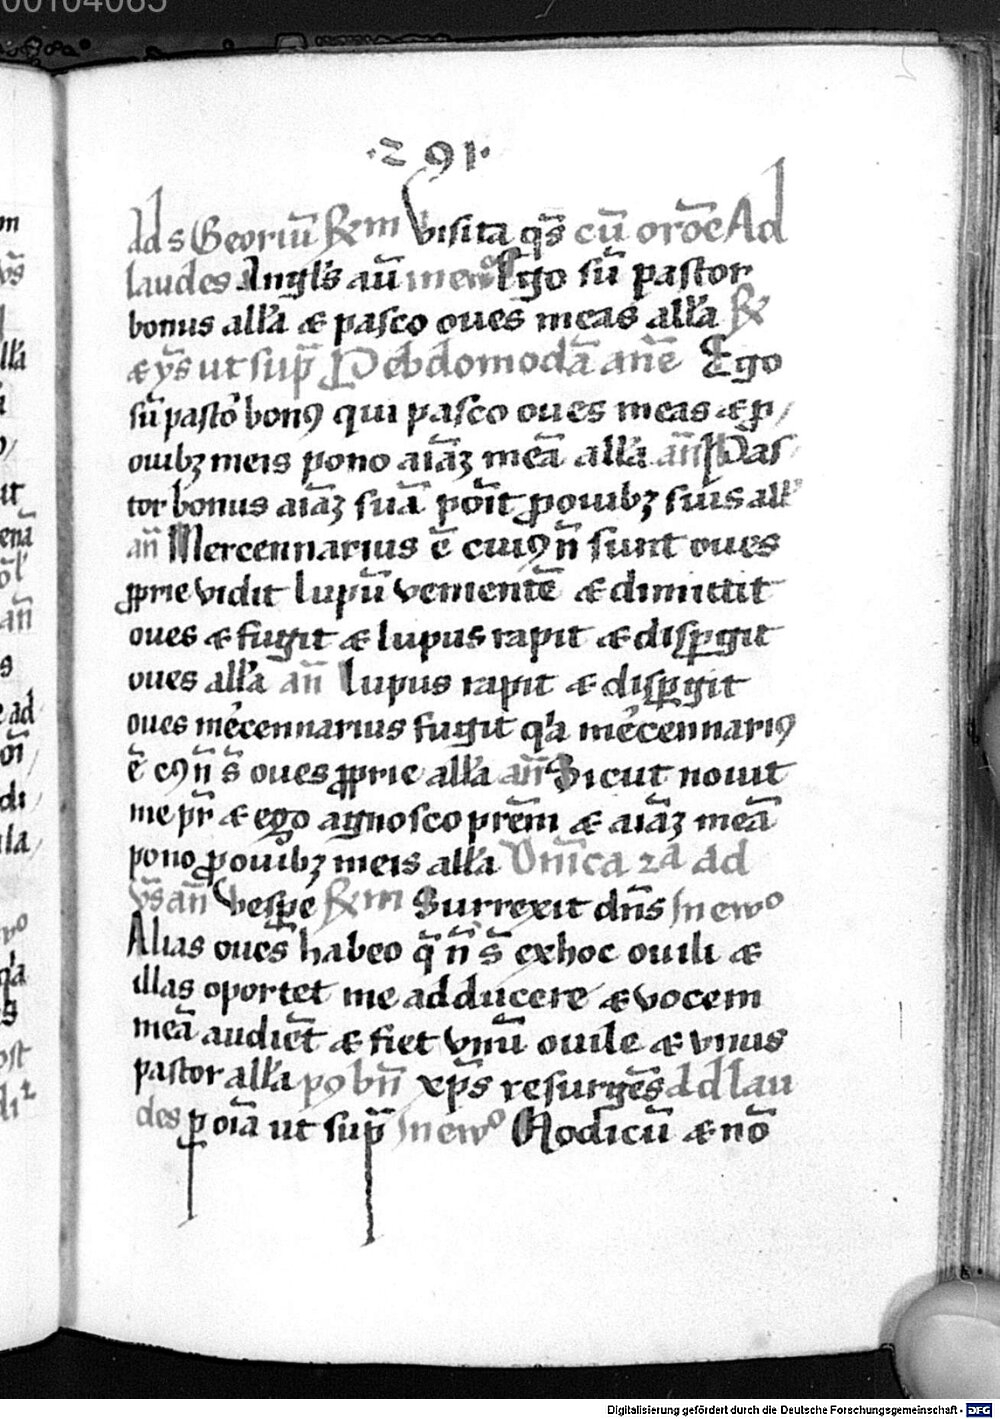 00104065
·291·
ad s Georiū R̄m Visita qs̄ cū orōe Ad
laudes Angl's aū in ewo Ego sū pastor
bonus all'a & pasco oues meas all'a R̄
& v̄s ut sup̄ Hebdomodā an̄e Ego
sū pasto' bonꝰ qui pasco oues meas & ꝓ
ouibꝫ meis pono aiāꝫ meā all'a an̄ Pas
tor bonus aiāꝫ suā pōit ꝓ ouibꝫ suis all'
an̄ Mercennarius ē cuiꝰ n̄ sunt oues
ꝓprie vidit lupū venientē & dimittit
oues & fugit & lupus rapit & disꝑgit
oues all'a an̄ Lupus rapit & disꝑgit
oues me'cennarius fugit q'a me'cennariꝰ
ē cꝰ n̄ s̄ oues ꝓprie all'a an̄ Sicut nouit
me pr̄ & ego agnosco prēm & aiāꝫ meā
pono ꝓ ouibꝫ meis all'a Dn̄ica 2a ad
v̄s an̄ Vespe' R̄m Surrexit dn̄s In ewo
Alias oues habeo q̄ n̄ s̄ ex hoc ouili &
illas oportet me adducere & vocem
meā audiēt & fiet vnū ouile & vnus
pastor all'a pꝰ bn̄ xp̄s resurgēs ad lau
des ꝑ oīa ut sup̄ In ewo Modicū & nō
Digitalisierung gefördert durch die Deutsche Forschungsgemeinschaft - DFG